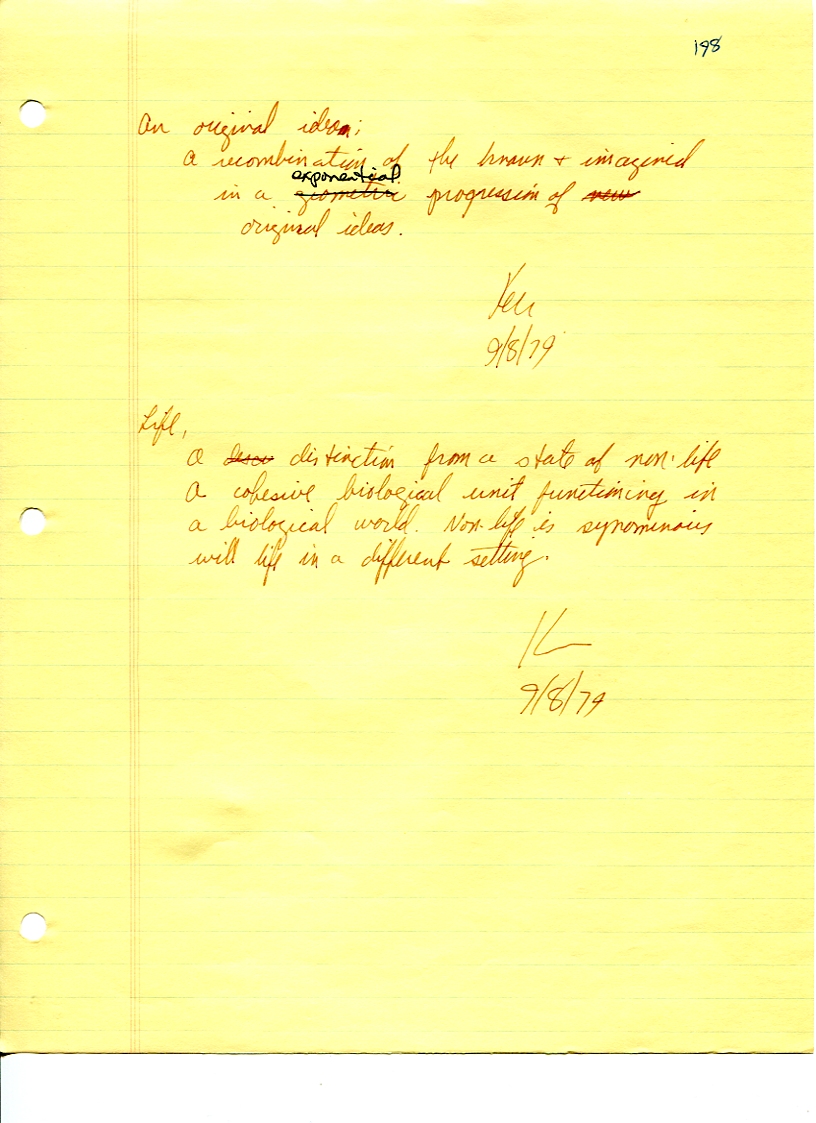 198
An original idea;
a recombination of the known + imagined
exponential
in a geometric progression of new
original ideas.
Ken
9/8/79
Life,
a distinction from a state of non-life
A cohesive biological unit functioning in
a biological world. Non-life is synominous
will life in a different setting.
K
9/8/79